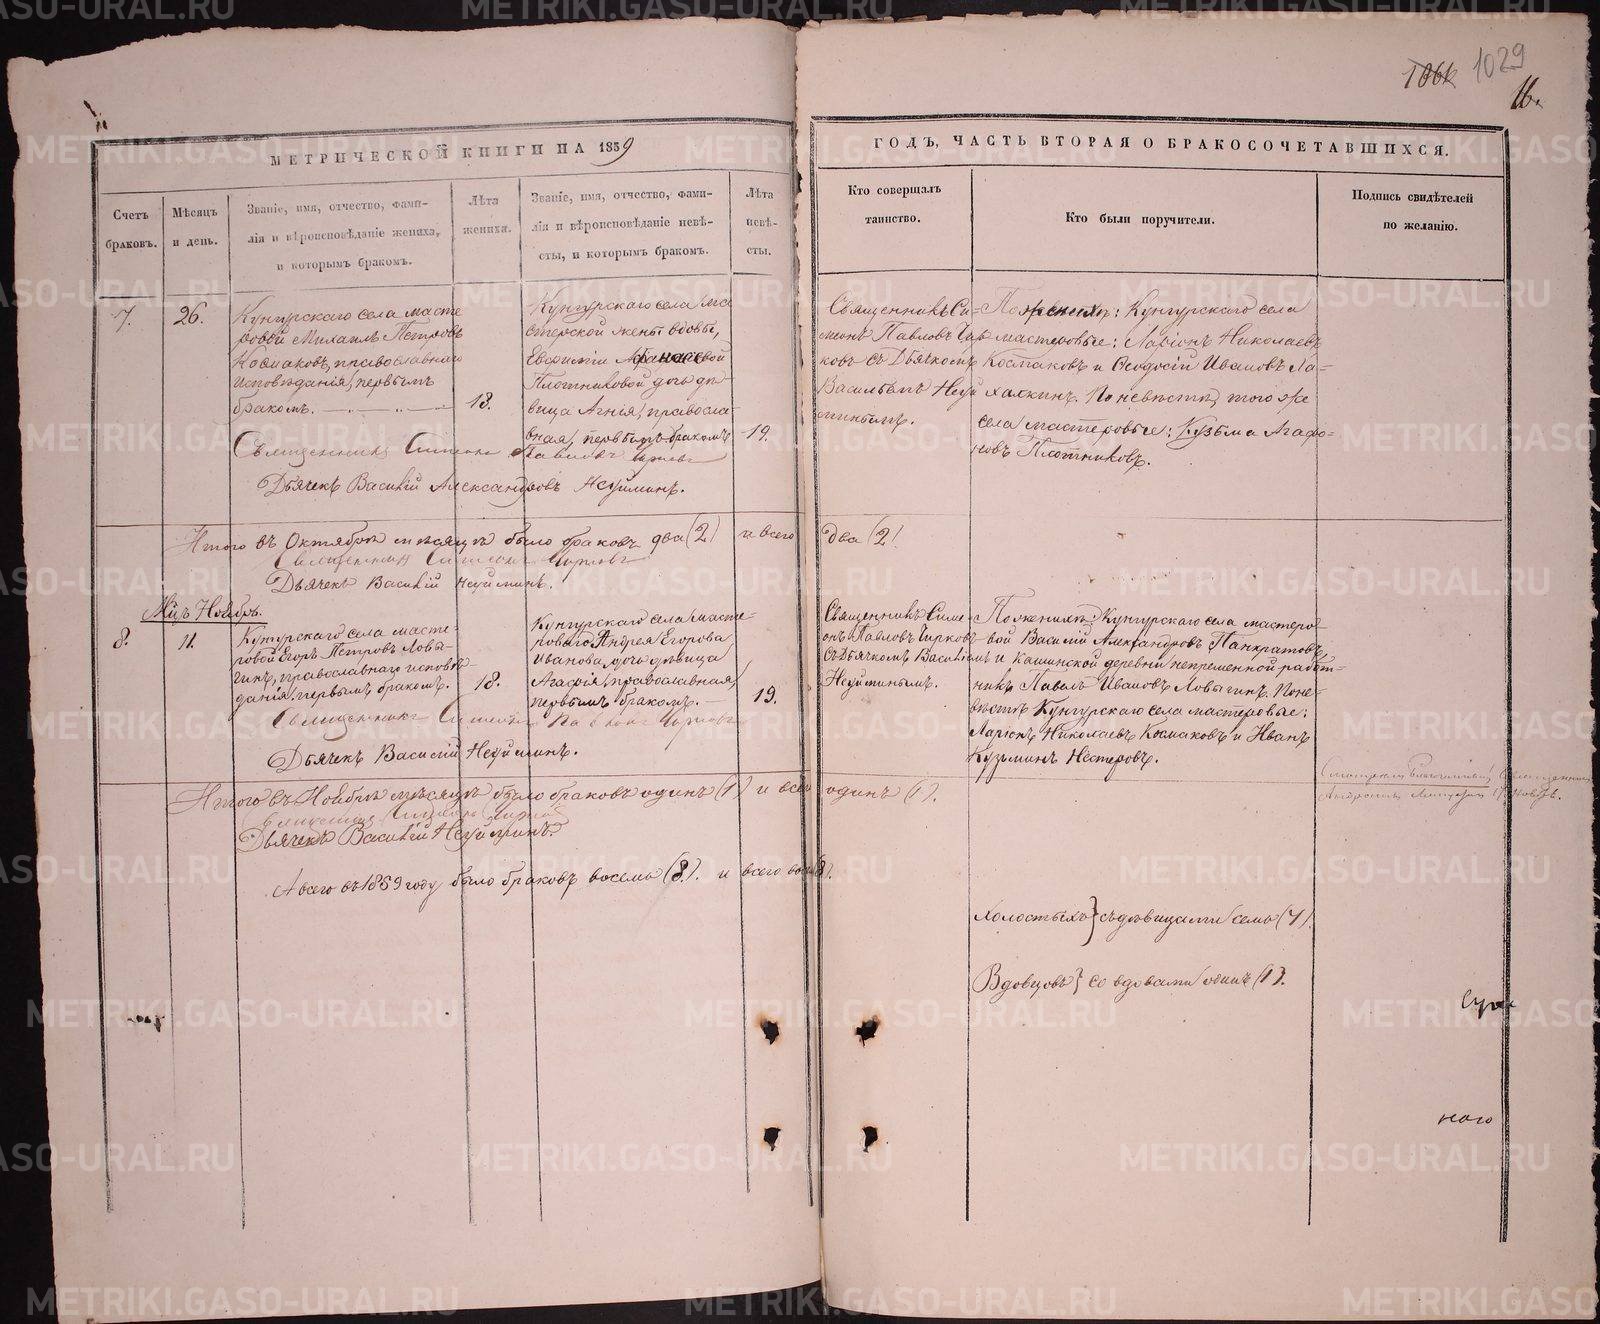 1029
МЕТРИЧЕСКОЙ КНИГИ НА 1859
ГОДЪ, ЧАСТЬ ВТОРАЯ О БРАКОСОЧЕТАВШИХСЯ.
Счетъ
браковъ.
Мѣсяцъ
и день.
Званіе, имя, отчество, фами-
лія и вѣроисповѣданіе жениха,
и которымъ бракомъ.
Лѣта
жениха.
Званіе, имя, отчество, фами-
лія и вѣроисповѣданіе невѣ-
сты, и которымъ бракомъ.
Лѣта
невѣ-
сты.
Кто совершалъ
таинство.
Кто были поручители.
Подпись свидѣтелей
по желанію.
7.
26.
Кунгурскаго села масте
ровой Михаилъ Петровъ
православнаго
исповѣданія, первымъ
бракомъ.
18.
Кунгурскаго села ма
стерской жены вдовы,
Евфиміи Афанасьевой
Плотниковой дочь дѣ-
вица Агнія, правосла-
вная, первымъ бракомъ
19.
Священникъ Си-
меонъ Павловъ Чир
ковъ съ Дьячкомъ
Васильемъ Неуй
минымъ.
По женихѣ: Кунгурскаго села
мастеровые: Ларіонъ Николаевъ
Космаковъ и Ѳеодосій Ивановъ Ла-
халкинъ. По невѣстѣ, того же
села мастеровые: Кузьма Агафо-
новъ Плотниковъ.
Священникъ Симеонъ Павловъ Чирковъ
Дьячекъ Василій Александровъ Неуйминъ.
Итого въ Октябрѣ мѣсяцѣ было браковъ два (2) и всего два (2)
Священникъ Симеонъ Чирковъ
Дьячекъ Василій Неуйминъ.
Мцъ Ноябрь.
8.
11.
Кунгурскаго села масте-
ровой Егоръ Петровъ Ловы-
гинъ, православнаго исповѣ-
данія, первымъ бракомъ.
18.
Кунгурскаго села масте-
роваго Андрея Егорова
Иванова дочь дѣвица
Агафія, православная,
первымъ бракомъ.
19.
Священникъ Симе-
онъ Павловъ Чирковъ
съ Дьячкомъ Василіемъ
Неуйминымъ.
По женихѣ: Кунгурскаго села мастеро-
вой Василій Александровъ Панкратовъ
и Кашинской деревни непременной работ-
никъ Павелъ Ивановъ Ловыгинъ. По не-
вѣстѣ Кунгурскаго села мастеровые:
Ларіонъ Николаевъ Космаковъ и Иванъ
Кузьминъ Нестеровъ.
Священникъ Симеонъ Павловъ Чирковъ
Дьячекъ Василій Неуйминъ.
Итого въ Ноябрѣ мѣсяцѣ было браковъ одинъ (1) и всего одинъ (1).
Священникъ Симеонъ Чирковъ
Дьячекъ Василій Неуйминъ.
А всего въ 1859 году было браковъ восемь (8). и всего восемь (8).
Холостыхъ} съ дѣвицами семь (7)
Вдовцовъ} со вдовами одинъ (1).
наго
METRIKI.GASO-URAL.RU